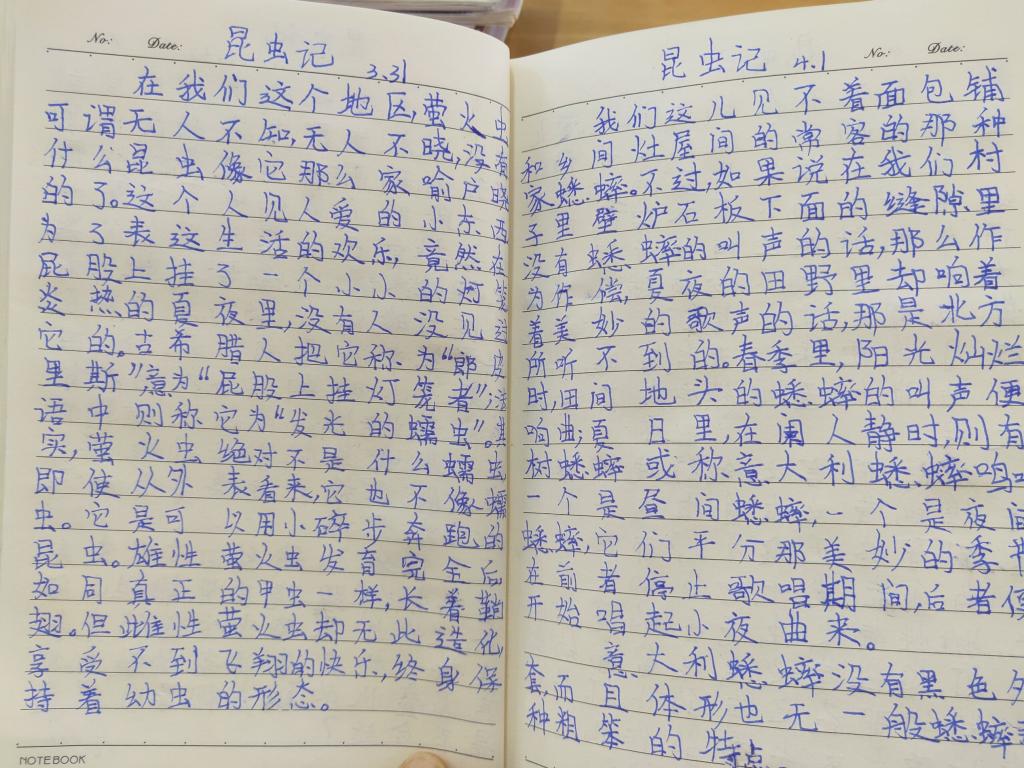 No: Date: 昆虫记 3.31
在我们这个地区,萤火虫
可谓无人不知,无人不晓,没有
什么昆虫像它那么家喻户晓
的了。这个人见人爱的小东西
为了表这生活的欢乐,竟然在
屁股上挂了一个小小的灯笼
炎热的夏夜里,没有人没见过
它的。古希腊人把它称为“郎皮
里斯”意为“屁股上挂灯笼者”;法
语中则称它为“发光的蠕虫”。其
实,萤火虫绝对不是什么蠕虫
即使从外表看来,它也不像蠕
虫。它是可以用小碎步奔跑的
昆虫。雄性萤火虫发育完全后
如同真正的甲虫一样,长着鞘
翅。但雌性萤火虫却无此造化
享受不到飞翔的快乐,终身保
持着幼虫的形态。
NOTEBOOK
昆虫记 4.1 No: Date:
我们这儿见不着面包铺
和乡间灶屋间的常客的那种
家蟋蟀。不过,如果说在我们村
子里壁炉石板下面的缝隙里
没有蟋蟀的叫声的话,那么作
为作偿,夏夜的田野里却响着
着美妙的歌声的话,那是北方
所听不到的。春季里,阳光灿烂
时,田间地头的蟋蟀的叫声便
响曲;夏日里,在阒人静时,则有
树蟋蟀或称意大利蟋蟀鸣
一个是昼间蟋蟀,一个是夜间
蟋蟀,它们平分那美妙的季节
在前者停止歌唱期间,后者便
开始唱起小夜曲来。
意大利蟋蟀没有黑色外
套,而且体形也无一般蟋蟀
种粗笨的特点